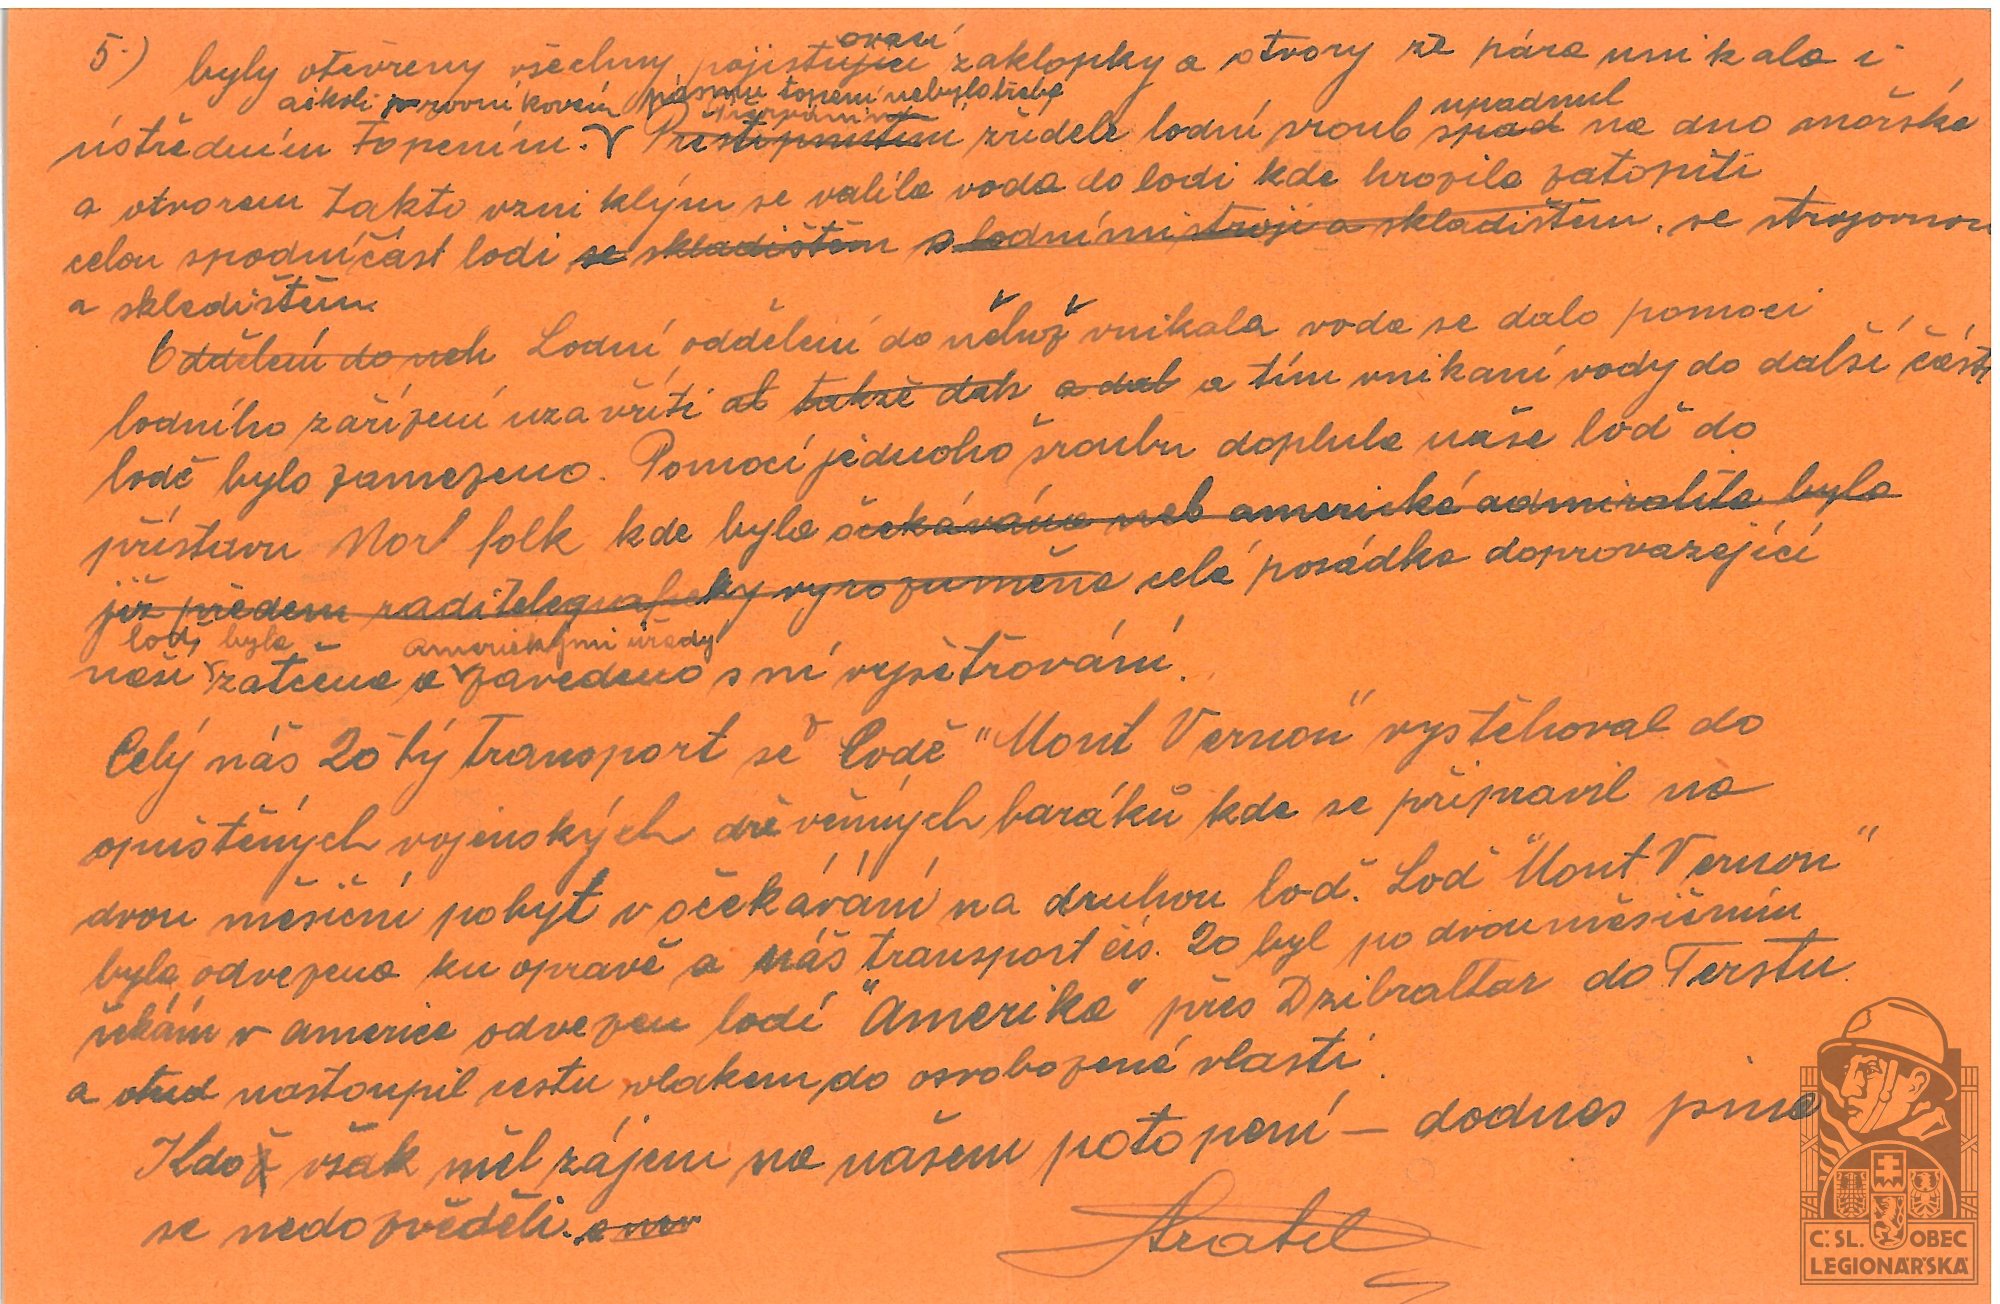 5.) byly otevřeny všechny pojistující ovací záklopky a otvory že pára unikala i
ačkoli v rovníkovém pásmu topení nebylo třeba
ústředním topením. V zřídele lodní šroub spad upadnul na dno mořské
a otvorem takto vzniklým se valila voda do lodi kde hrozila zatopiti
celou spodní část lodi se skladištěm a lodními stroji a skladištěm. se strojovnou
a skladištěm.
Oddělení do nch Lodní oddělení do něhož vnikala voda se dalo pomocí
lodního zařízení uzavříti at takže dak a dal a tím vnikaní vody do další část
lodě bylo zamezeno. Pomocí jednoho šroubu doplula naše loď do
přístavu Nor folk kde byla očekávána neb americká admiralita byla
již předem raditelegraficky vyrozuměna celá posádka doprovazející
lodi byla americkými úřady
naši zatčena a zavedeno s ní vyšetřování.
Celý náš 20 tý transport se lodě "Mont Vernon" vystěhoval do
opuštěných vojenských dřevěných baráků kde se připravil na
dvou měsíční pobyt v očekávání na druhou loď. Loď "Mont Vernon"
byla odvezena ku opravě a náš transport čís. 20 byl po dvouměsičním
čekání v americe odvezen lodí "Amerika" přes Dzibraltar do Terstu
a otud nastoupil cestu vlakem do osvobozené vlasti.
Kdož však měl zájem na našem potopení – dodnes jsme
se nedozvěděli.
Č. SL. OBEC
LEGIONÁŘSKÁ